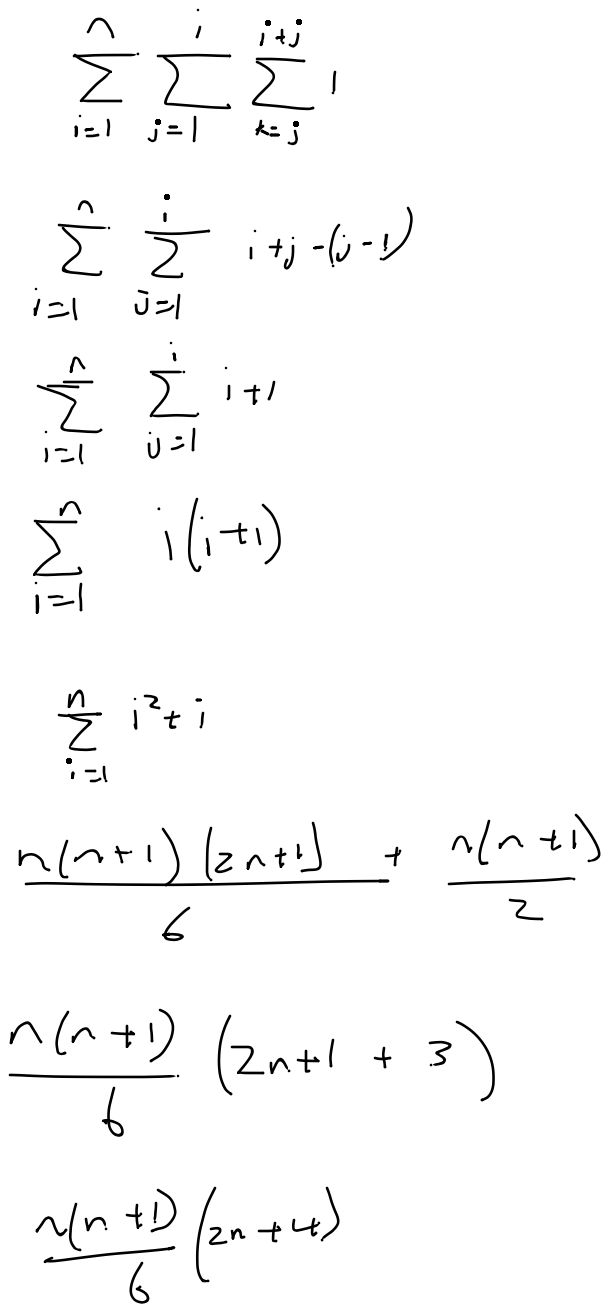 \sum_{i=1}^{n} \sum_{j=1}^{i} \sum_{k=j}^{i+j} 1
\sum_{i=1}^{n} \sum_{j=1}^{i} i+j-(j-1)
\sum_{i=1}^{n} \sum_{j=1}^{i} i+1
\sum_{i=1}^{n} i(i+1)
\sum_{i=1}^{n} i^2+i
\frac{n(n+1)(2n+1)}{6} + \frac{n(n+1)}{2}
\frac{n(n+1)}{6} (2n+1+3)
\frac{n(n+1)}{6} (2n+4)